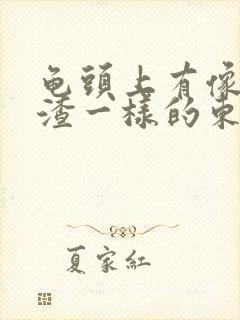 龟頭上有像
渣一樣的東
夏家紅